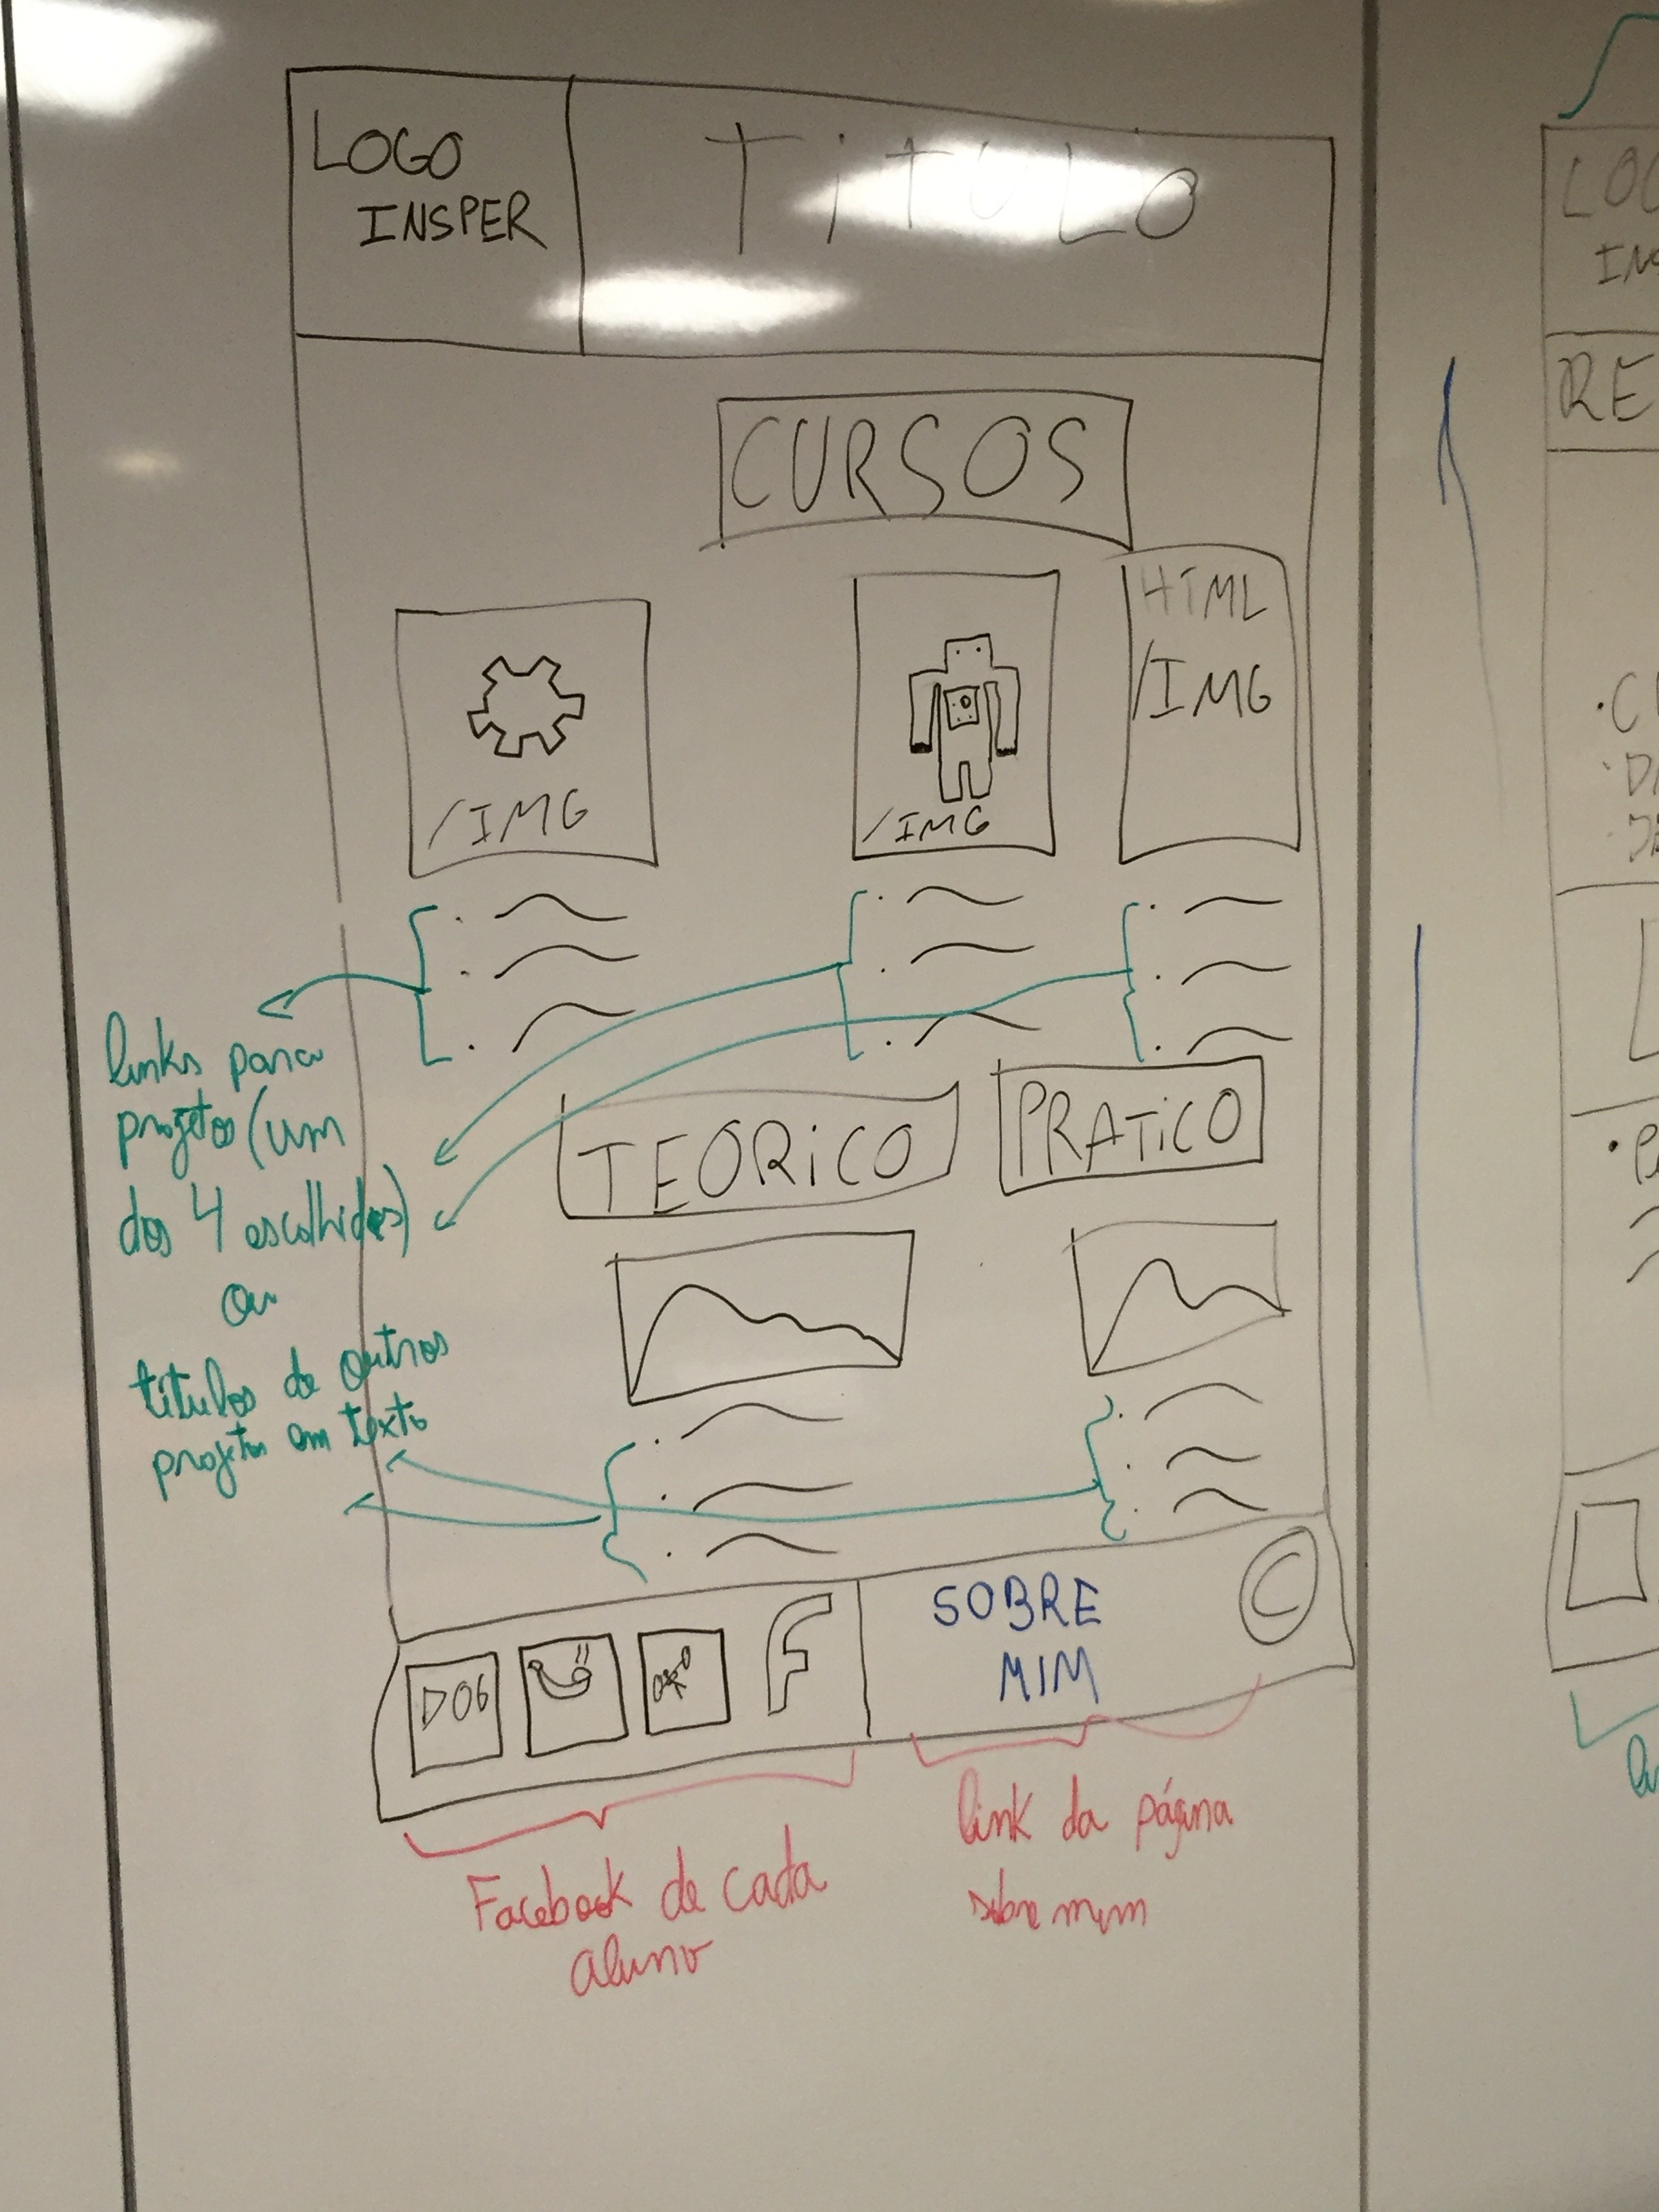 LOGO
INSPER
TíTULO
CURSOS
/IMG
/IMG
HTML
/IMG
links para
projetos (um
dos 4 escolhidos)
ou
títulos de outros
projetos em texto
TEÓRiCO
PRATiCO
DOG
F
SOBRE
MIM
C
Facebook de cada
aluno
link da página
sobre mim
LOG
RE